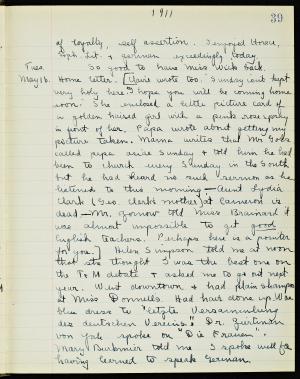 1911
39
of loyalty, self assertion. I enjoyed Horace,
Soph. Lit. & German exceedingly today.
Tues. So good to have Miss Wick back.
May 16. Home letter. Marie wrote too. Sunday isnt kept
very holy here. I hope you will be coming home
soon. She enclosed a little picture card of
a golden haired girl with a pink rose
in front of her. Papa wrote about getting my
picture taken. Mama writes that Mr. 
called papa aside Sunday & told him he had
been to church every Sunday in the South
but he had heard no such sermon as he
listened to this morning — Aunt Lydia
Clark (Geo. Clark's mother) at Cameron is
dead — Mr. Gornow told Miss Brainard it
was almost impossible to get good
English teachers. Perhaps here is a pointer
for you. Helen Simpson told me at noon
that she thought I was the best one on
the debate & asked me to go out next
year. Went downtown & had plain shampoo
at Miss Donnells. Had hair done up. Wore
blue dress to "letzte Versammlung
des deutschen Vereins." Dr.
von spoke on "Die Frauen".
Mary told me I spoke well for
having learned to speak German.